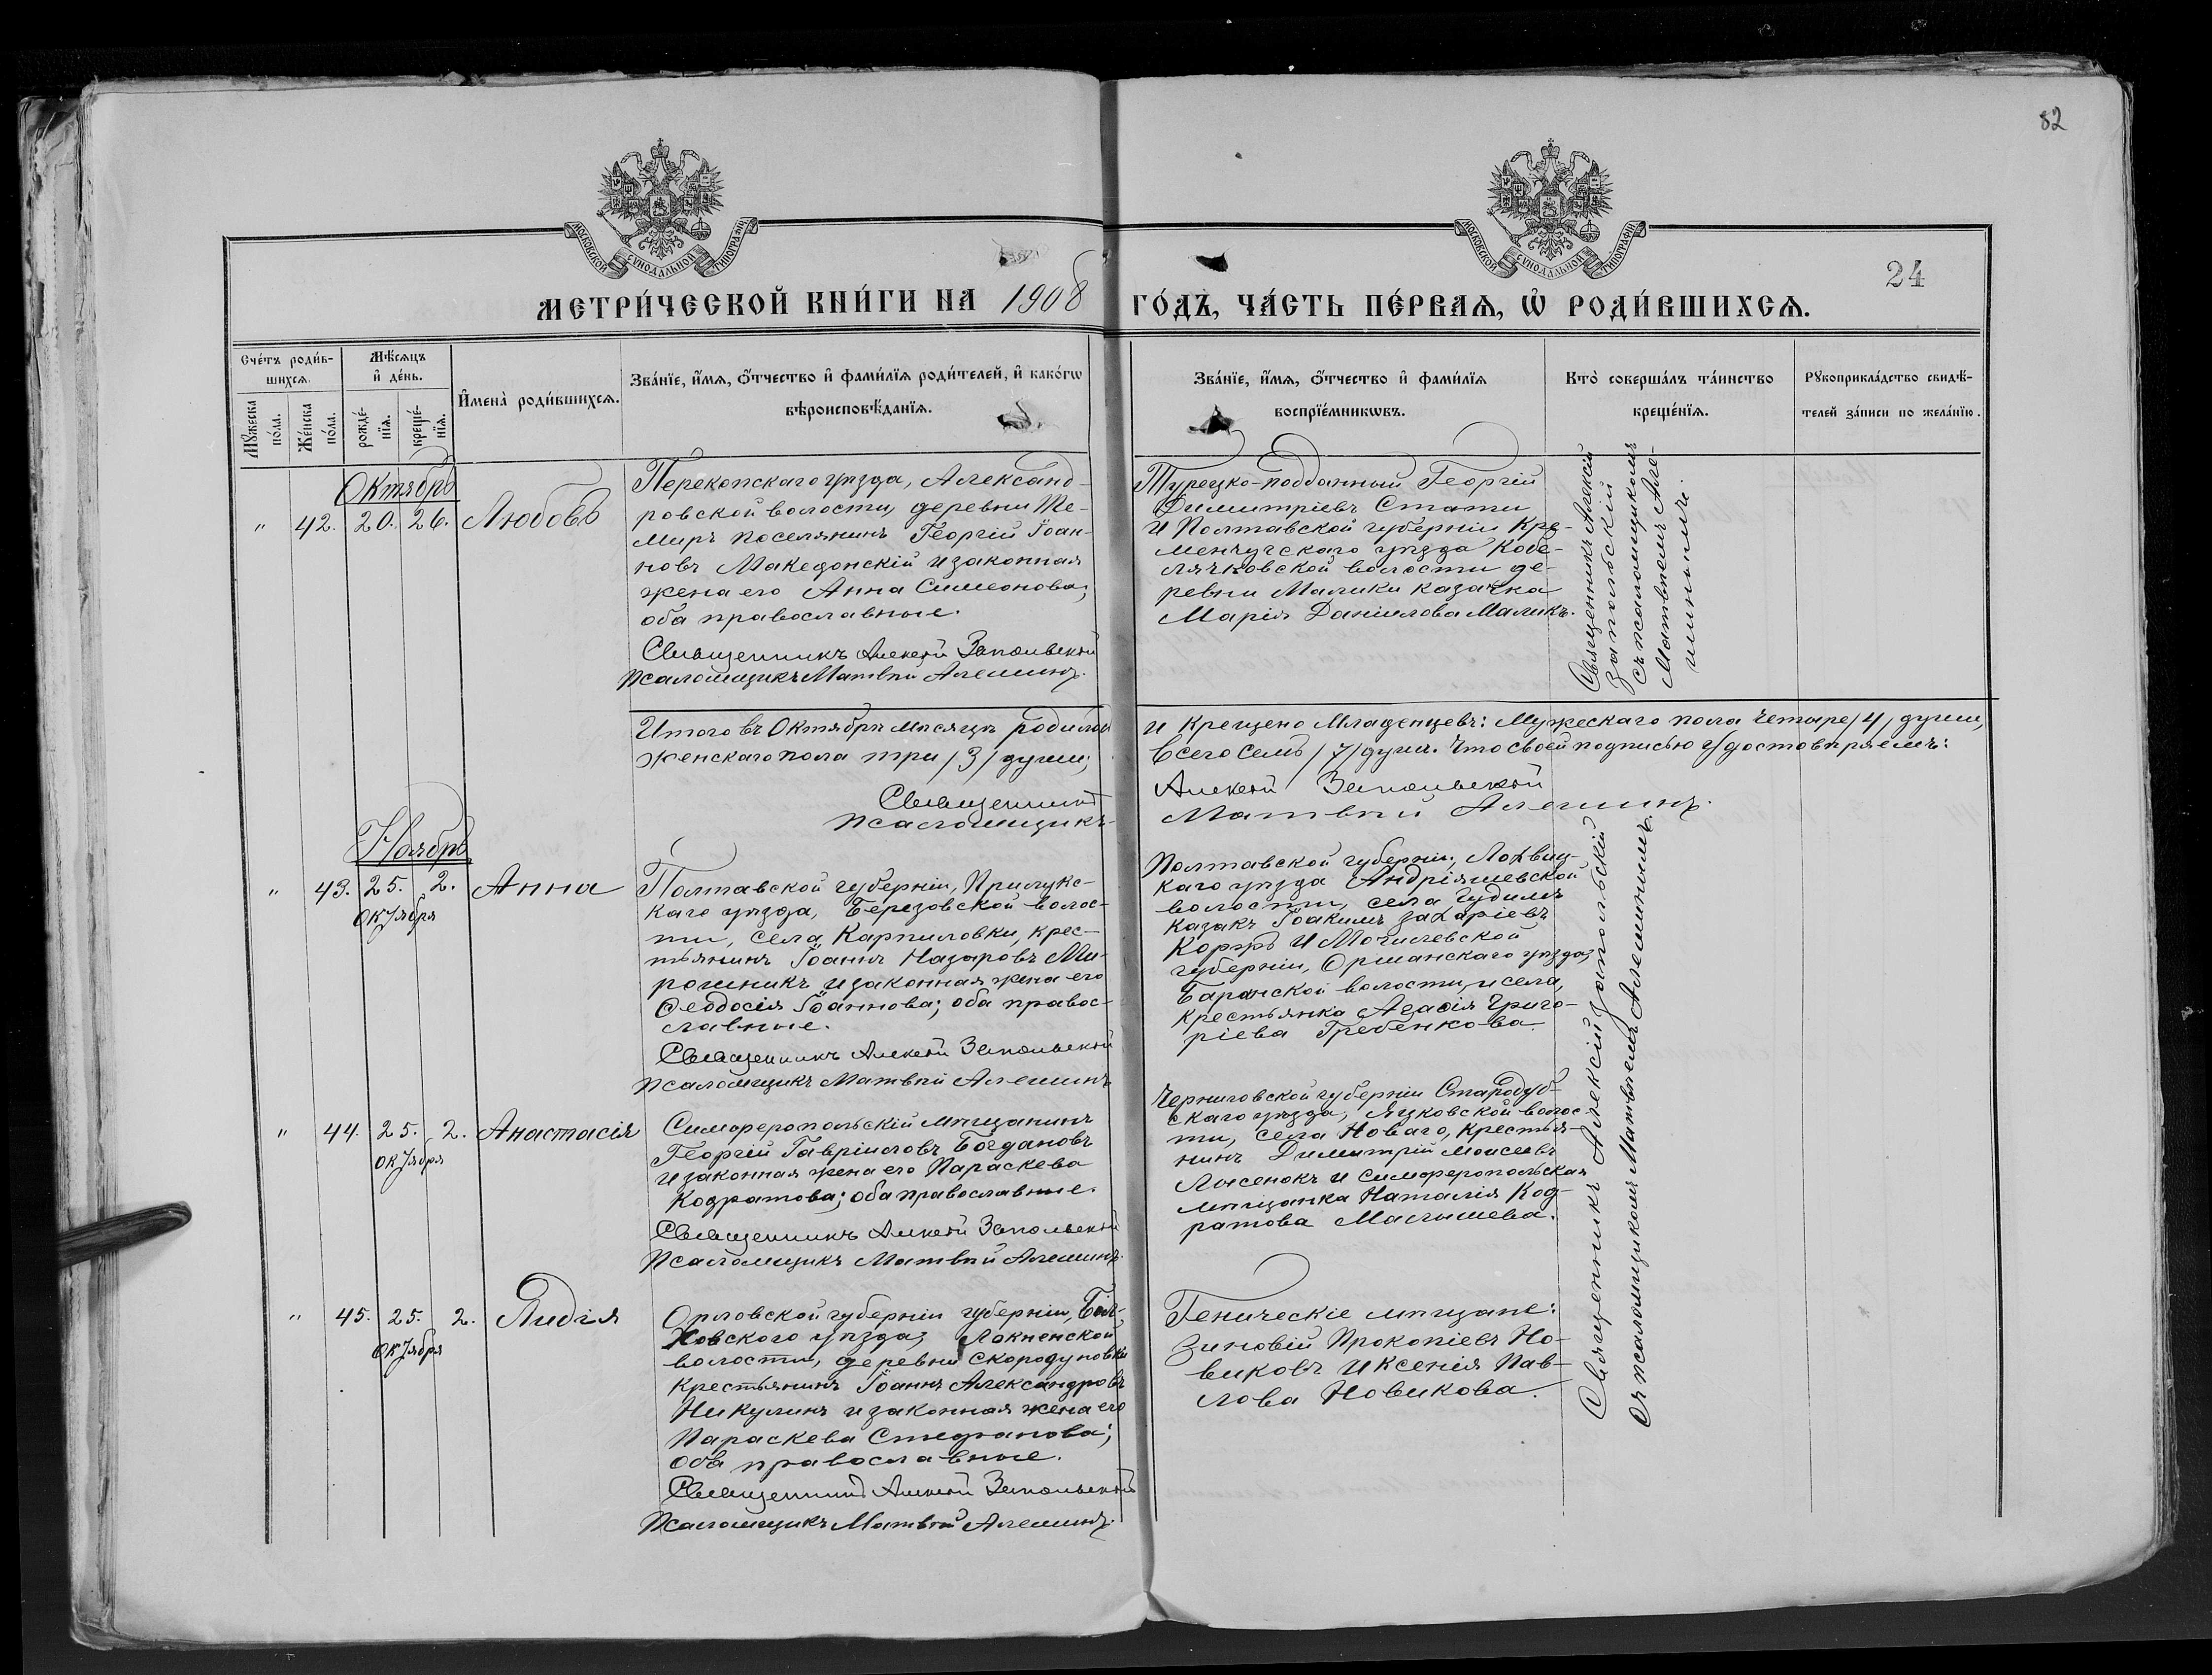 82
МОСКОВСКОЙ СѴНОДАЛЬНОЙ ТИПОГРАФІИ
МОСКОВСКОЙ СѴНОДАЛЬНОЙ ТИПОГРАФІИ
24
МЕТРИ́ЧЕСКОЙ КНИ́ГИ НА 1908 ГО́ДЪ, ЧА́СТЬ ПЕ́РВАЯ, Ѡ҆ РОДИ́ВШИХСЯ.
Сче́тъ роди́в-
шихся.
Мѣ́сяцъ
и҆ де́нь.
Му́жеска
по́ла.
Же́нска
по́ла.
рожде́-
нїя.
креще́-
нїя.
И҆мена̀ роди́вшихся.
Зва́нїе, и҆́мя, ѻ҆́тчество и҆ фами́лїя роди́телей, и҆ како́гѡ
вѣроисповѣ́данїя.
Зва́нїе, и҆́мя, ѻ҆́тчество и҆ фами́лїя
воспрїе́мникѡвъ.
Кто̀ соверша́лъ та́инство
креще́нїя.
Рукоприкла́дство свидѣ́-
телей за́писи по жела́нїю.
Октябрь
" 42. 20. 26. Любовь
Перекопскаго уѣзда, Александ-
ровской волости, деревни Те-
миръ поселянинъ Георгій Іоан-
новъ Македонскій и законная
жена его Анна Симеонова;
оба православные.
Священникъ Алексѣй Запольскій
Псаломщикъ Матвѣй Алешинъ.
Турецко-подданный Георгій
Димитріевъ Стати
и Полтавской губерніи Кре-
менчугскаго уѣзда Кобе-
лячковской волости де-
ревни Малики казачка
Марія Даніилова Маликъ.
Священникъ Алексій
Запольскій
съ псаломщикомъ
Матвѣемъ Але-
шинымъ.
Итого въ Октябрѣ мѣсяцѣ родилось
женскаго пола три /3/ души;
и крещено младенцевъ: мужескаго пола четыре /4/ души,
всего семь /7/ душъ. Что своей подписью удостовѣряемъ:
Священникъ Алексѣй Запольскій
Псаломщикъ Матвѣй Алешинъ.
Ноябрь
" 43. 25. 2. Анна
Октября
Полтавской губерніи, Прилукс-
каго уѣзда, Березовской волос-
ти, села Карпиловки, крес-
тьянинъ Іоаннъ Назаровъ Ми-
рошникъ и законная жена его
Ѳеодосія Іоаннова; оба правос-
лавные.
Священникъ Алексѣй Запольскій
Псаломщикъ Матвѣй Алешинъ
Полтавской губерніи, Лохвиц-
каго уѣзда Андріяшевской
волости, села Гудимъ
казакъ Іоакимъ Захаріевъ
Коржъ и Могилевской
губерніи, Оршанскаго уѣзда,
Баранской волости, и села
крестьянка Агафія Григо-
ріева Гребенкова
" 44. 25. 2. Анастасія
Октября
Симферопольскій мѣщанинъ
Георгій Гавріиловъ Богдановъ
и законная жена его Параскева
Кодратова; оба православные.
Священникъ Алексѣй Запольскій
Псаломщикъ Матвѣй Алешинъ.
Черниговской губерніи Стародуб-
скаго уѣзда, Яцковской волос-
ти, села Новаго, крестья-
нинъ Димитрій Моисеевъ
Лысенокъ и симферопольская
мѣщанка Наталія Код-
ратова Малышева.
" 45. 25. 2. Лидія
Октября
Орловской губерніи губерніи, Бол-
ховского уѣзда,
волости, деревни Скородуновки
крестьянинъ Іоаннъ Александровъ
Никулинъ и законная жена его
Параскева Стефанова;
оба православные.
Священникъ Алексѣй Запольскій
Псаломщикъ Матвѣй Алешинъ.
Геническіе мѣщане:
Зиновій Прокопіевъ Но-
виковъ и Ксенія Пав-
лова Новикова.
Священникъ Алексій Запольскій
съ псаломщикомъ Матвѣемъ Алешинымъ.